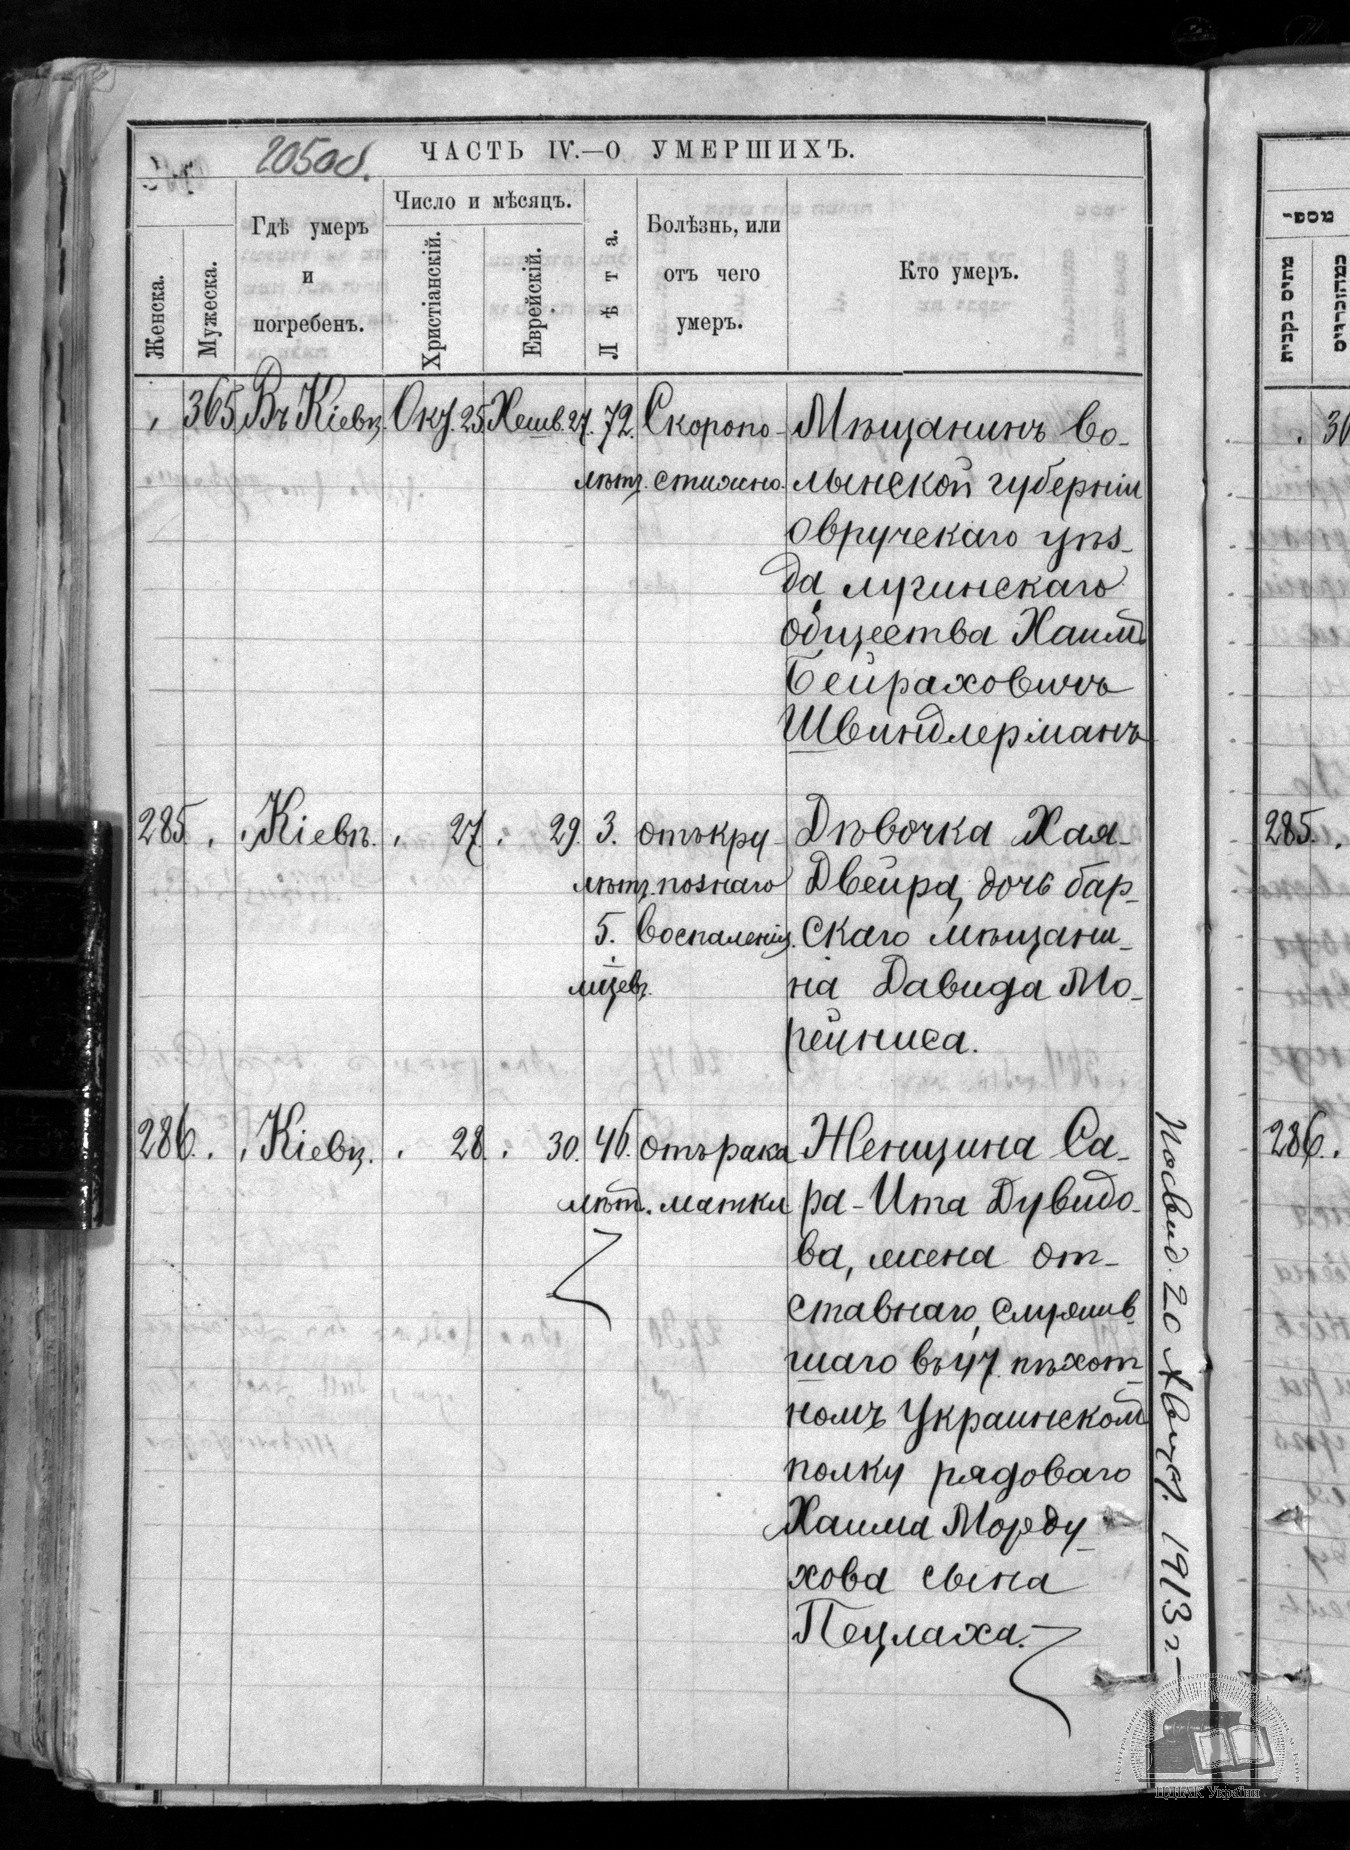 20508.
ЧАСТЬ IV.—О УМЕРШИХЪ.
Женска.
Мужеска.
Гдѣ умеръ
и
погребенъ.
Число и мѣсяцъ.
Христіанскій.
Еврейскій.
Лѣта.
Болѣзнь, или
отъ чего
умеръ.
Кто умеръ.
365 Въ Кіевѣ. Окт. 25 Хешв. 27. 72. Скоропо-
лѣтъ. стижно.
Мѣщанинъ Во-
лынской губерніи
Овручскаго уѣз-
да лугинскаго
общества Хаимъ
Бейраховичъ
Швиндлерманъ
285. Кіевѣ. 27. 29. 3. отъ кру-
лѣтъ. познаго
5. воспаленія.
мѣцевъ.
Дѣвочка Хая-
Двейра, дочь бар-
скаго мѣщани-
на Давида Мо-
рейниса.
286. Кіевѣ. 28. 30. 46. отъ рака
лѣтъ. матки
Женщина Са-
ра-Ита Дувидо-
ва, жена от-
ставнаго, служив-
шаго въ 47 пѣхот-
номъ Украинскомъ
полку рядоваго
Хаима Морду-
хова сына
Пецлаха.
1913 г.
285.
286.
ЦДІАК України